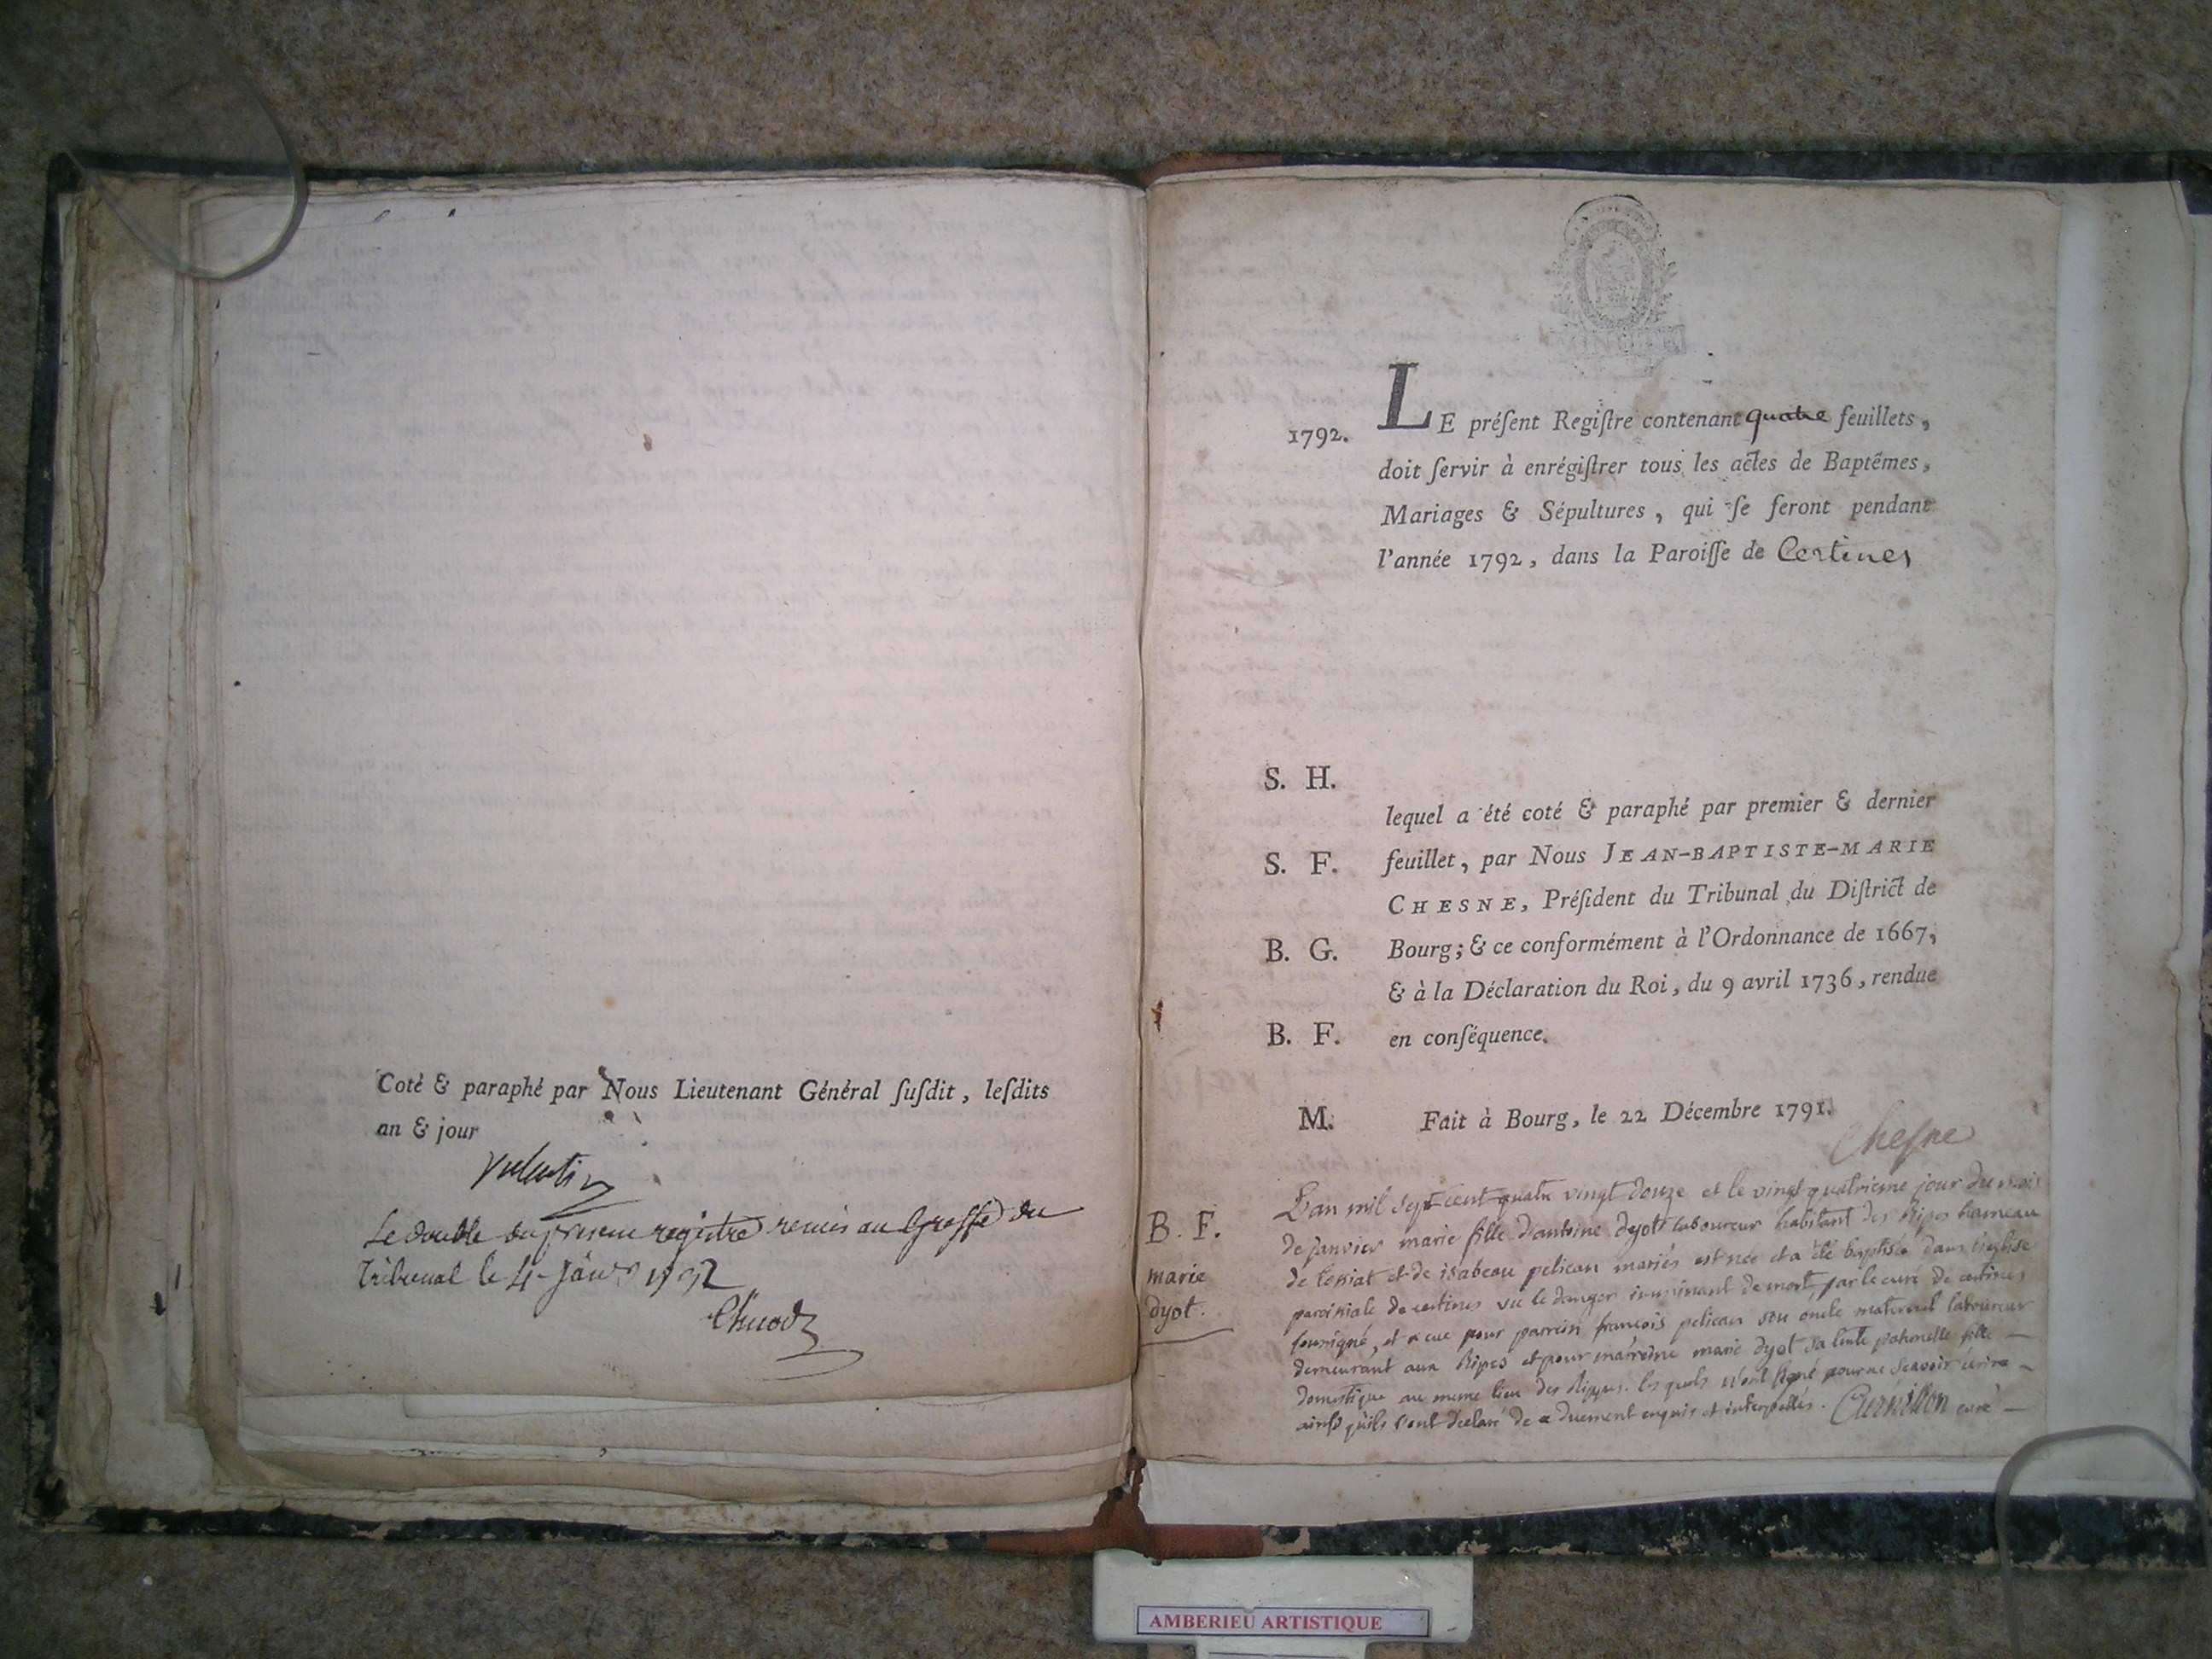 Coté & paraphé par Nous Lieutenant Général ſuſdit, leſdits
an & jour
Valentin
Le double du présent registre remis au Greffe du
Tribunal le 4 Janv. 1792
1792.
LE préſent Regiſtre contenant quatre feuillets,
doit ſervir à enrégiſtrer tous les actes de Baptêmes,
Mariages & Sépultures, qui ſe feront pendant
l'année 1792, dans la Paroiſſe de Certines
S. H.
lequel a été coté & paraphé par premier & dernier
S. F. feuillet, par Nous JEAN-BAPTISTE-MARIE
CHESNE, Préſident du Tribunal du Diſtrict de
B. G. Bourg; & ce conformément à l'Ordonnance de 1667,
& à la Déclaration du Roi, du 9 avril 1736, rendue
B. F. en conſéquence.
M. Fait à Bourg, le 22 Décembre 1791.
Chesne
B. F.
marie
dyot.
L'an mil sept cent quatre vingt douze et le vingt quatrieme jour du mois
de janvier marie fille d'antoine dyot laboureur habitant des Ripes hameau
de et de isabeau pelican mariés est née et a été baptisée dans l'eglise
paroissiale de certines vu le danger imminant de mort par le curé de certines
soussigné, et a eue pour parrein francois pelican son oncle maternel laboureur
demeurant aux Ripes et pour marreine marie dyot sa tente paternelle fille
domestique au meme lieu des Rippes. les quels n'ont signé pour ne scavoir ecrire
ainsi qu'ils l'ont declaré de ce duement enquis et interpellés. curé
AMBERIEU ARTISTIQUE